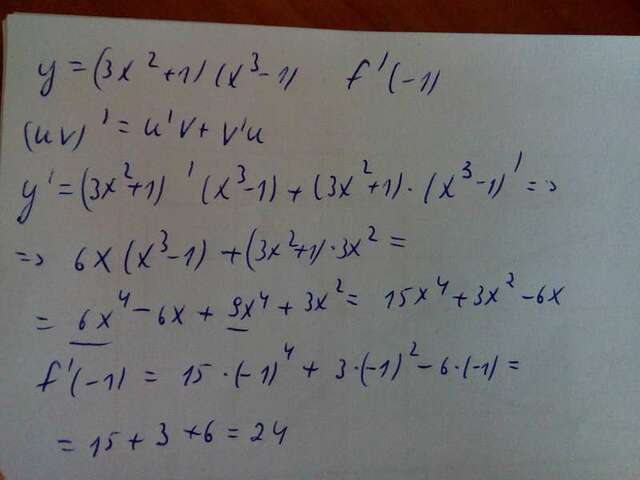 y = (3x² + 1) (x³ - 1) f'(-1)
(uv)' = u'v + v'u
y' = (3x² + 1)' (x³ - 1) + (3x² + 1) · (x³ - 1)' =>
=> 6x (x³ - 1) + (3x² + 1) · 3x² =
= 6x⁴ - 6x + 9x⁴ + 3x² = 15x⁴ + 3x² - 6x
f'(-1) = 15 · (-1)⁴ + 3 · (-1)² - 6 · (-1) =
= 15 + 3 + 6 = 24